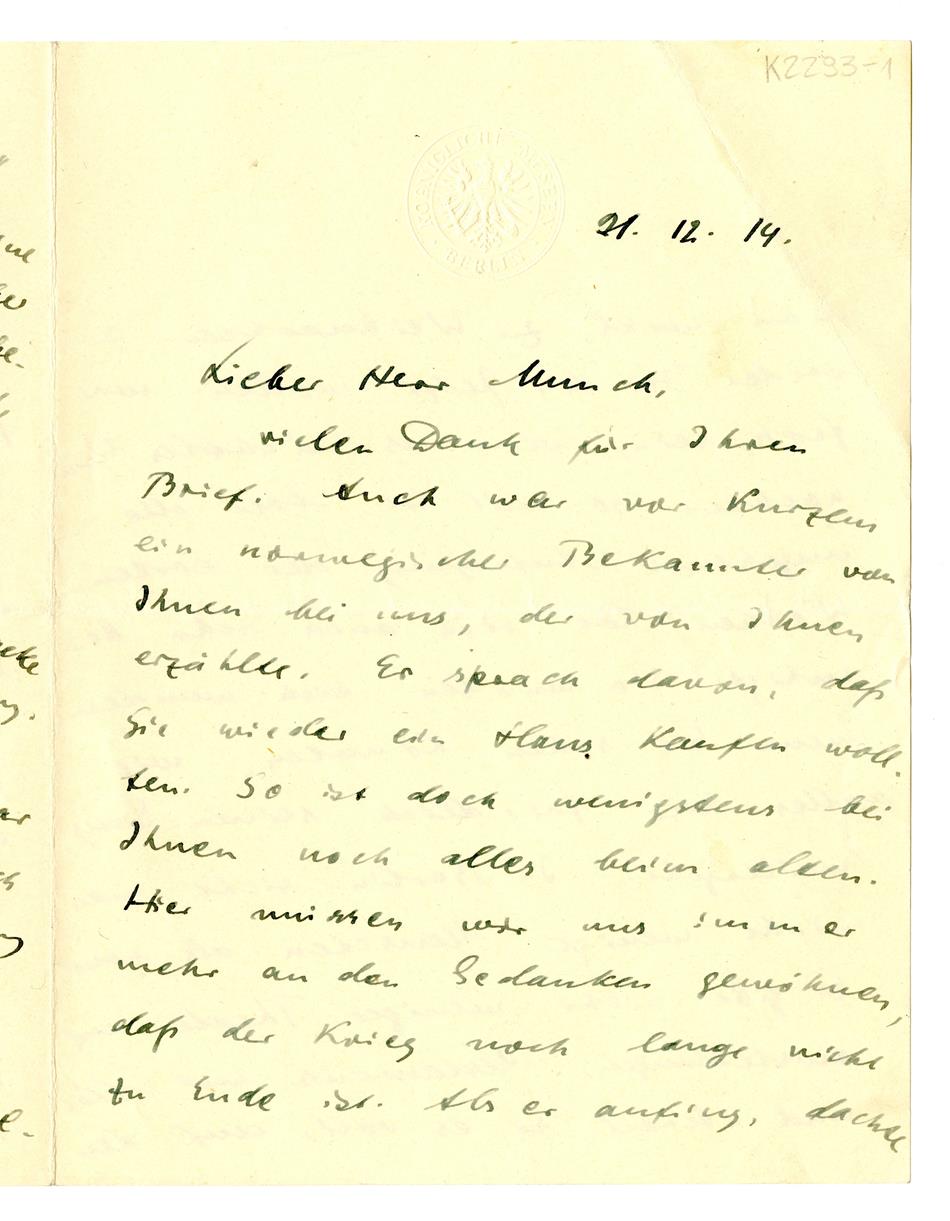 K2293-1
KOENIGLICHE MUSEEN
BERLIN
21. 12. 14.
Lieber Herr Munch,
vielen Dank für Ihren
Brief. Auch war vor Kurzem
ein norwegischer Bekannter von
Ihnen bei uns, der von Ihnen
erzählte. Er sprach davon, daß
Sie wieder ein Haus Kaufen woll-
ten. So ist doch wenigstens bei
Ihnen noch alles beim alten.
Hier müssen wir uns immer
mehr an den Gedanken gewöhnen,
daß der Krieg noch lange nicht
zu Ende ist. Als er anfing, dachte